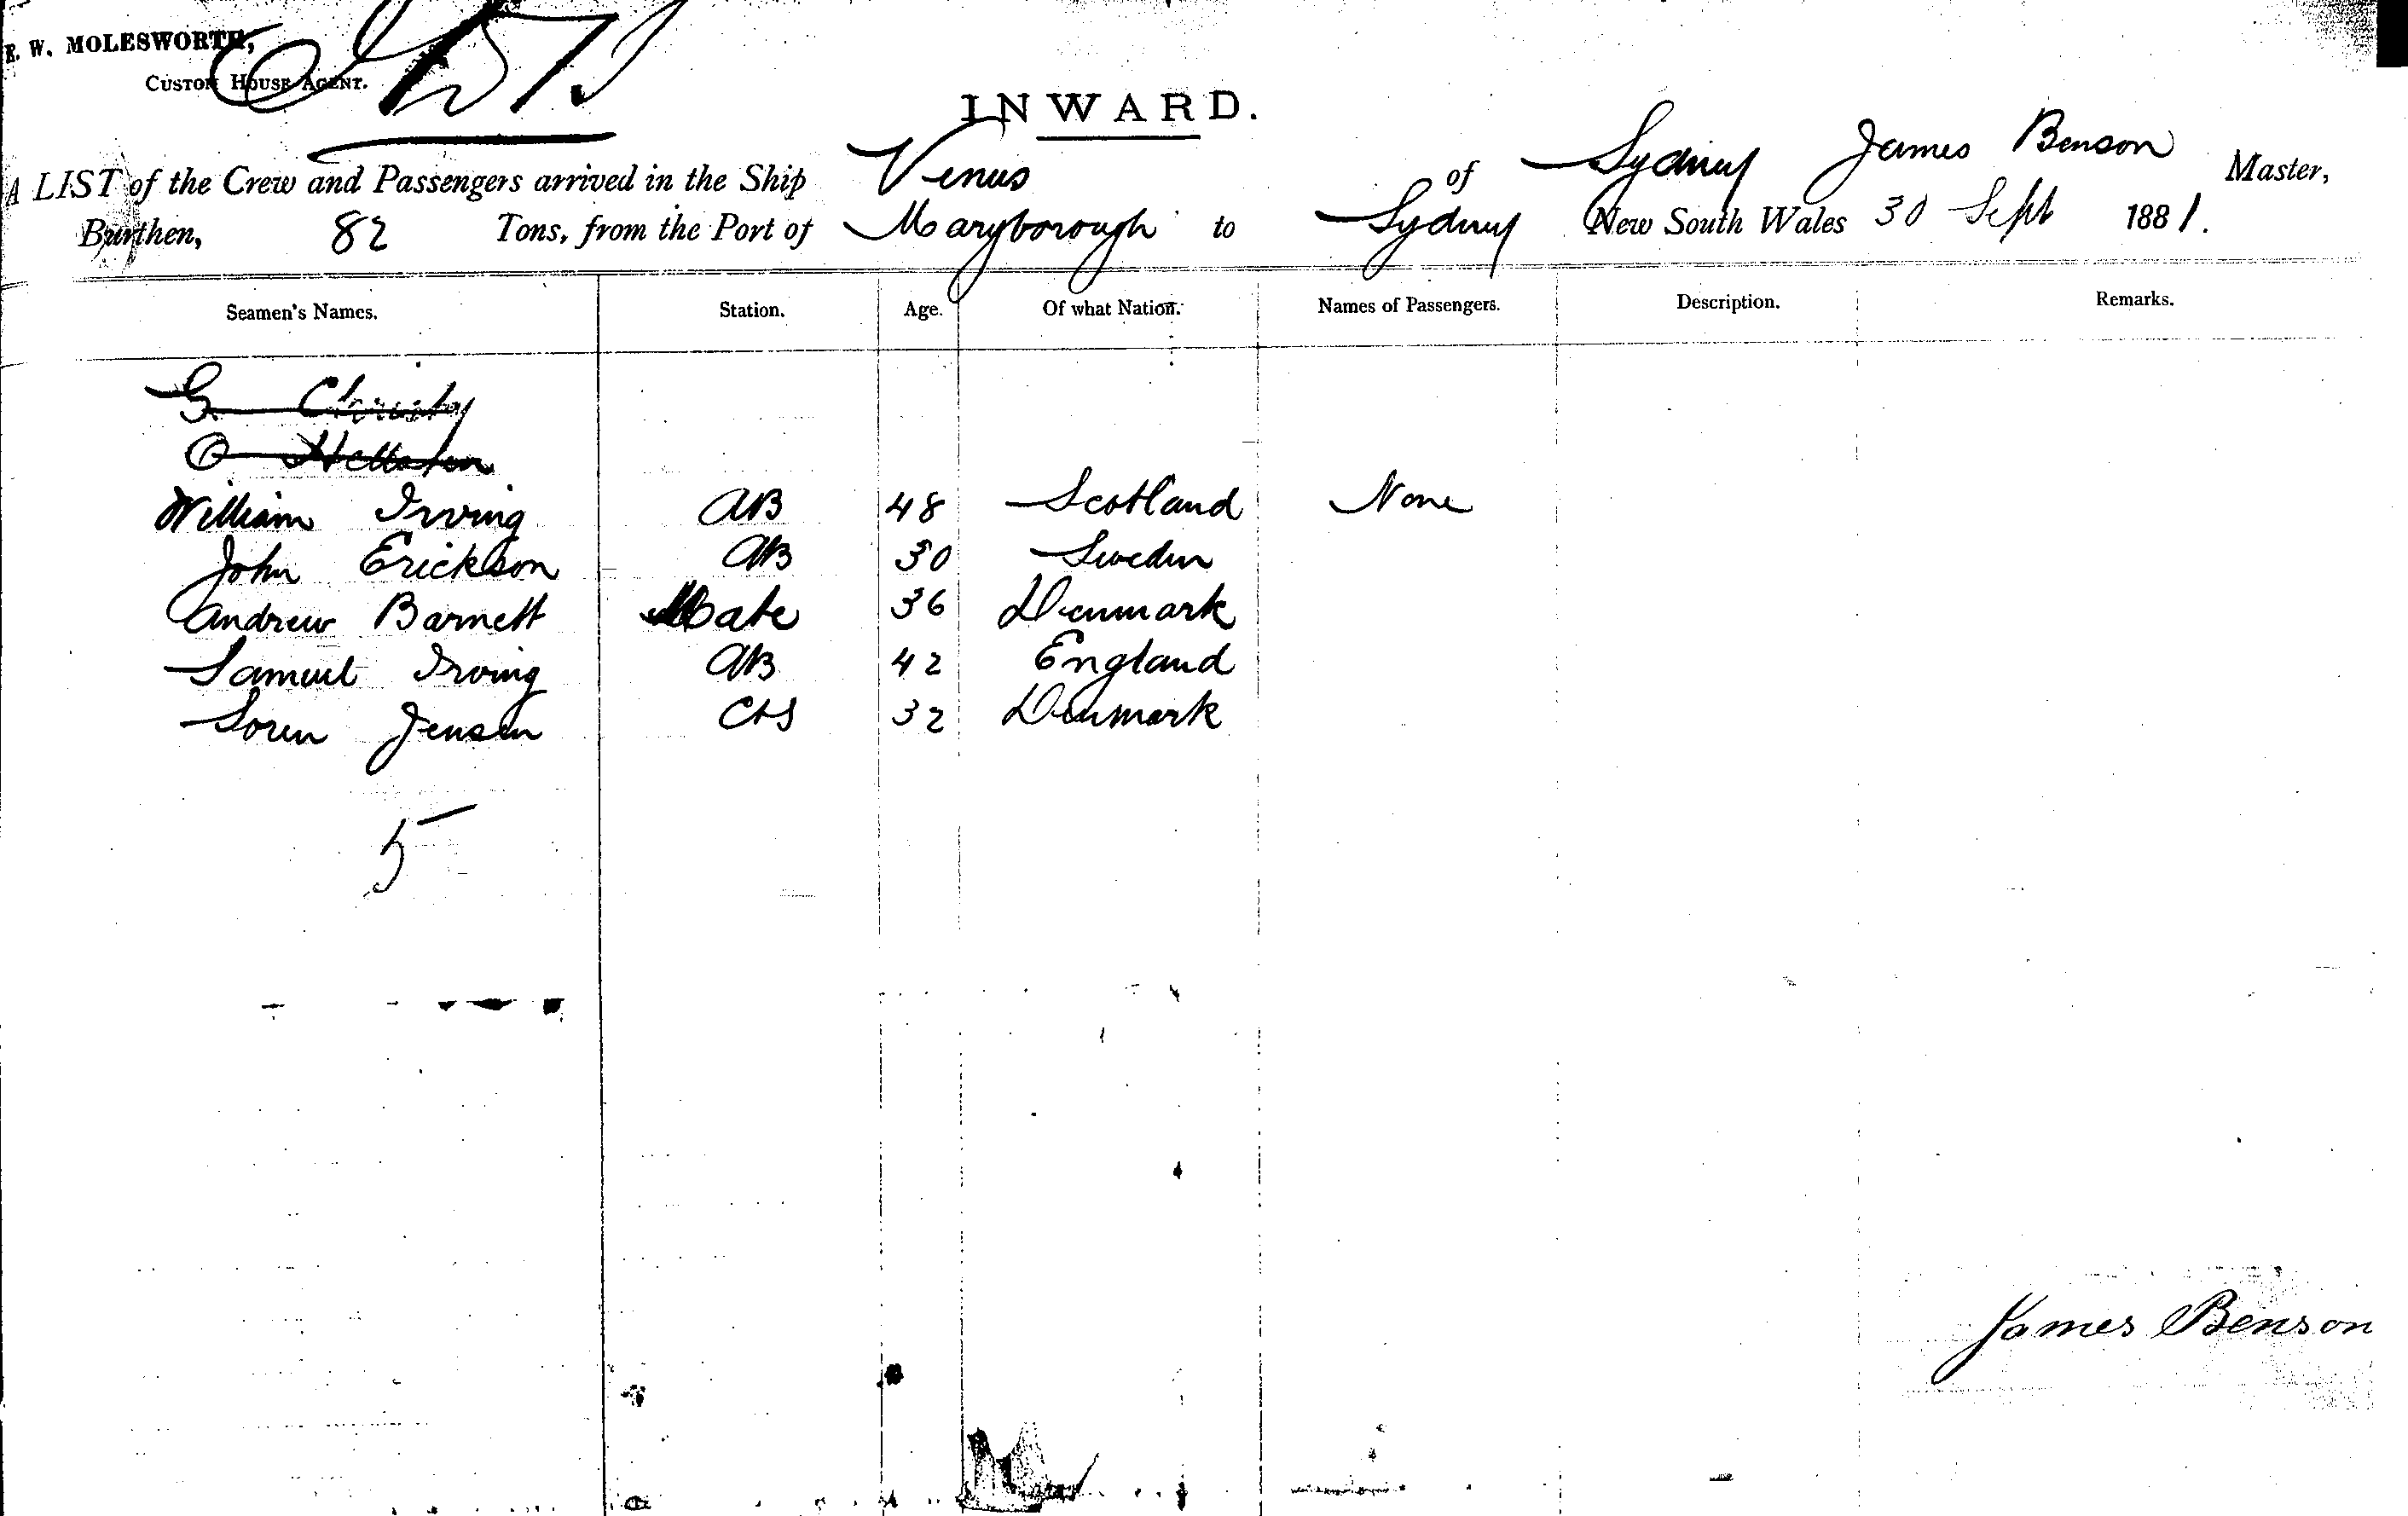 E. W. MOLESWORTH,
CUSTOM HOUSE AGENT.
INWARD.
A LIST of the Crew and Passengers arrived in the Ship Venus of Sydney James Benson Master,
Burthen, 82 Tons, from the Port of Maryborough to Sydney New South Wales 30 Sept 1881.
Seamen's Names. Station. Age. Of what Nation. Names of Passengers. Description. Remarks.
G. Christy
O
William Irving AB 48 Scotland None
John Erickson AB 30 Sweden
Andrew Barnett Mate 36 Denmark
Samuel Irving AB 42 England
Soren Jensen 32 Denmark
5
James Benson